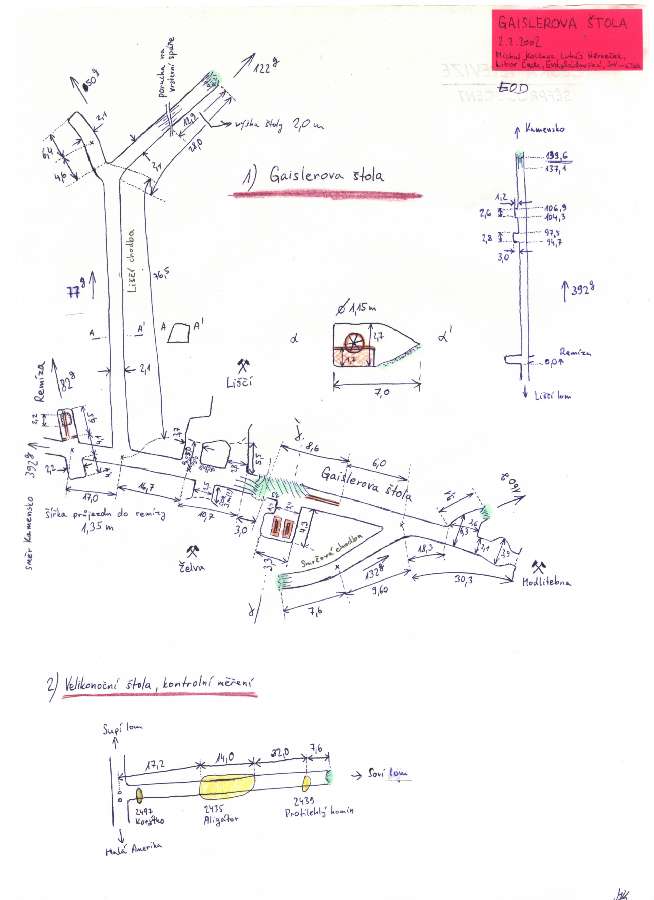 GAISLEROVA ŠTOLA
2.2.2002
EOD
Kamensko
139,6
137,1
1,2
2,6
106,9
104,3
2,8
97,5
94,7
3,0
392g
Remíza
0,0
Liščí lom
50g
porucha na
vrstevní spáře
122g
výška štoly 2,0 m
12,9
28,0
2,1
6,4
4,6
2,1
1) Gaislerova štola
Liščí chodba
76,5
77g
A
A'
A
A'
2,1
Ø 1,15m
α
α'
2,7
1,7
7,0
Liščí
Remíza
82g
2,2
6,5
4,1
392g
2,2
17,0
16,7
10,7
3,0
šířka průjezdu do remízy
1,35 m
směr Kamensko
Želva
8,6
6,0
5,5
Gaislerova štola
4,3
3,3
Smrčová chodba
132g
7,6
9,60
18,3
30,3
2,1
3,9
Modlitebna
2) Velikonoční štola, kontrolní měření
Supí lom
17,2
14,0
22,0
7,6
Soví lom
2497
Korýtko
2435
Aligátor
2439
Protilehlý komín
Malá Amerika